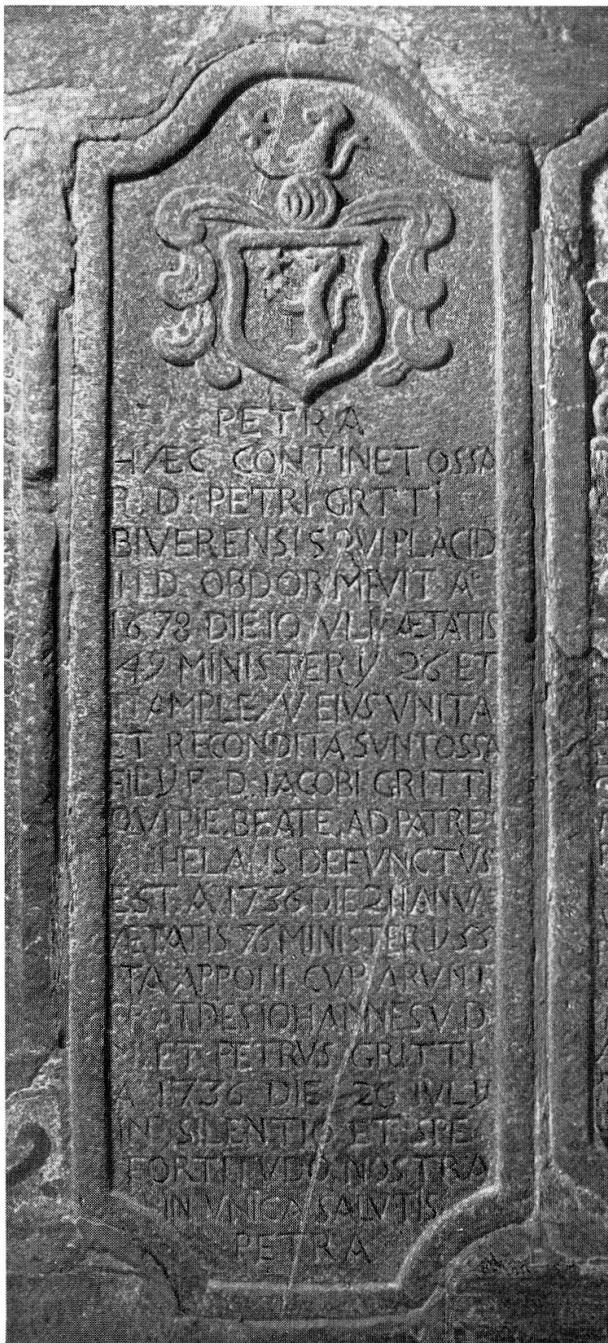 PETRA
HÆC CONTINET OSSA
R. D. PETRI GRITTI
BIVERENSIS QVI PLACID
IN D. OBDORMIVIT Aº
1678 DIE 10 IVLII ÆTATIS
49 MINISTERY 26 ET
EIVS VNITA
ET RECONDITA SVNT OSSA
FILY R. D. IACOBI GRITTI
QVI PIE. BEATE. AD PATRES
DEFVNCTVS
EST. A. 1736 DIE 21 IANVA
ÆTATIS 76 MINISTERY 53
ITA APPONI CVPARVNT
IOHANNES V. D.
M. ET PETRVS GRITTI
A 1736 DIE 26 IVLY
IN SILENTIO ET SPE
FORTITVDO NOSTRA
IN VNICA SALVTIS
PETRA